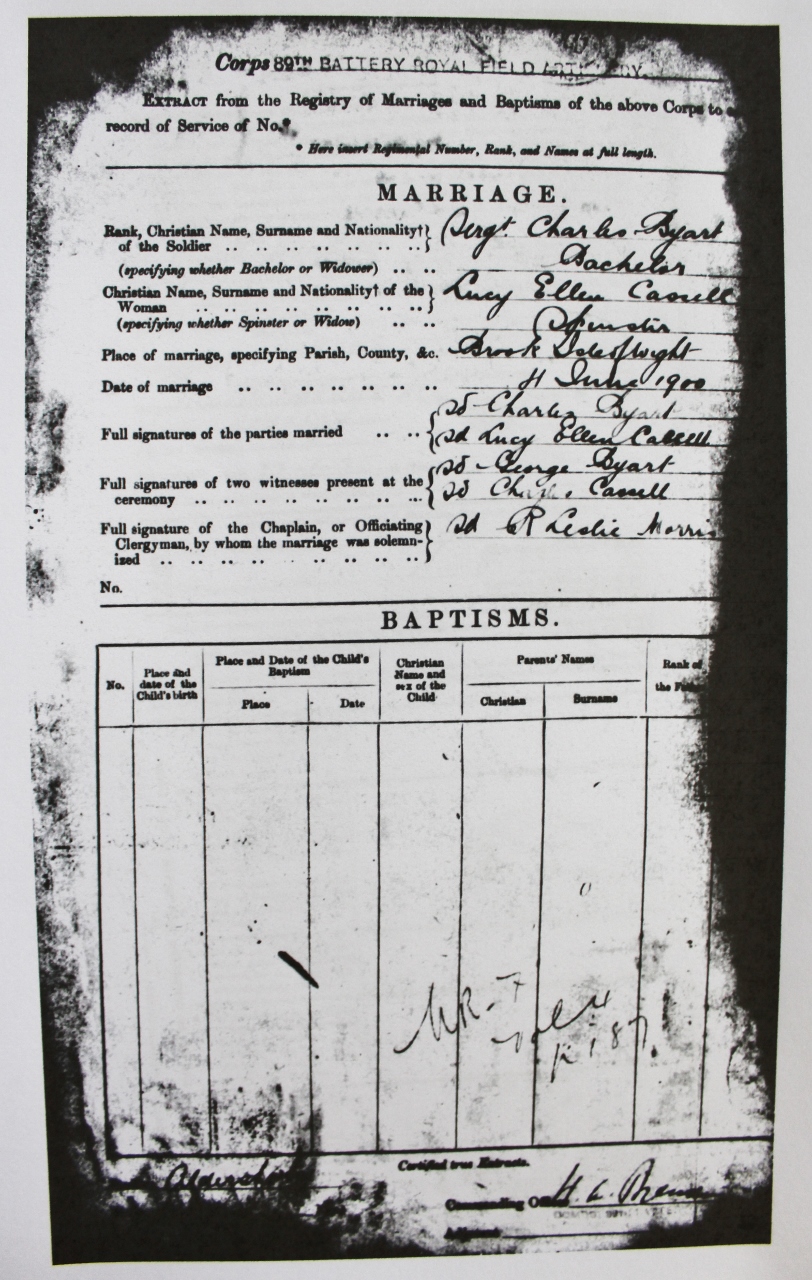 Corps 89TH BATTERY ROYAL FIELD ARTILLERY.
EXTRACT from the Registry of Marriages and Baptisms of the above Corps to
record of Service of No.*
* Here insert Regimental Number, Rank, and Names at full length.
MARRIAGE.
Rank, Christian Name, Surname and Nationality† Sergt. Charles Byart
of the Soldier .. .. .. .. .. .. ..
(specifying whether Bachelor or Widower) .. .. Bachelor
Christian Name, Surname and Nationality† of the Lucy Ellen Cassell
Woman .. .. .. .. .. .. .. ..
(specifying whether Spinster or Widow) .. .. Spinster
Place of marriage, specifying Parish, County, &c. Brook Isle of Wight
Date of marriage .. .. .. .. .. .. .. 4 June 1900
sd Charles Byart
Full signatures of the parties married .. .. sd Lucy Ellen Cassell
sd George Byart
Full signatures of two witnesses present at the
ceremony .. .. .. .. .. .. .. .. sd Charles Cassell
Full signature of the Chaplain, or Officiating sd R Leslie Morris
Clergyman, by whom the marriage was solemn-
ized .. .. .. .. .. .. .. ..
No.
BAPTISMS.
No.
Place and
date of the
Child's birth
Place and Date of the Child's
Baptism
Place
Date
Christian
Name and
sex of the
Child
Parents' Names
Christian
Surname
Rank of
the
Certified true Extracts.
Aldershot
Commanding H. A.